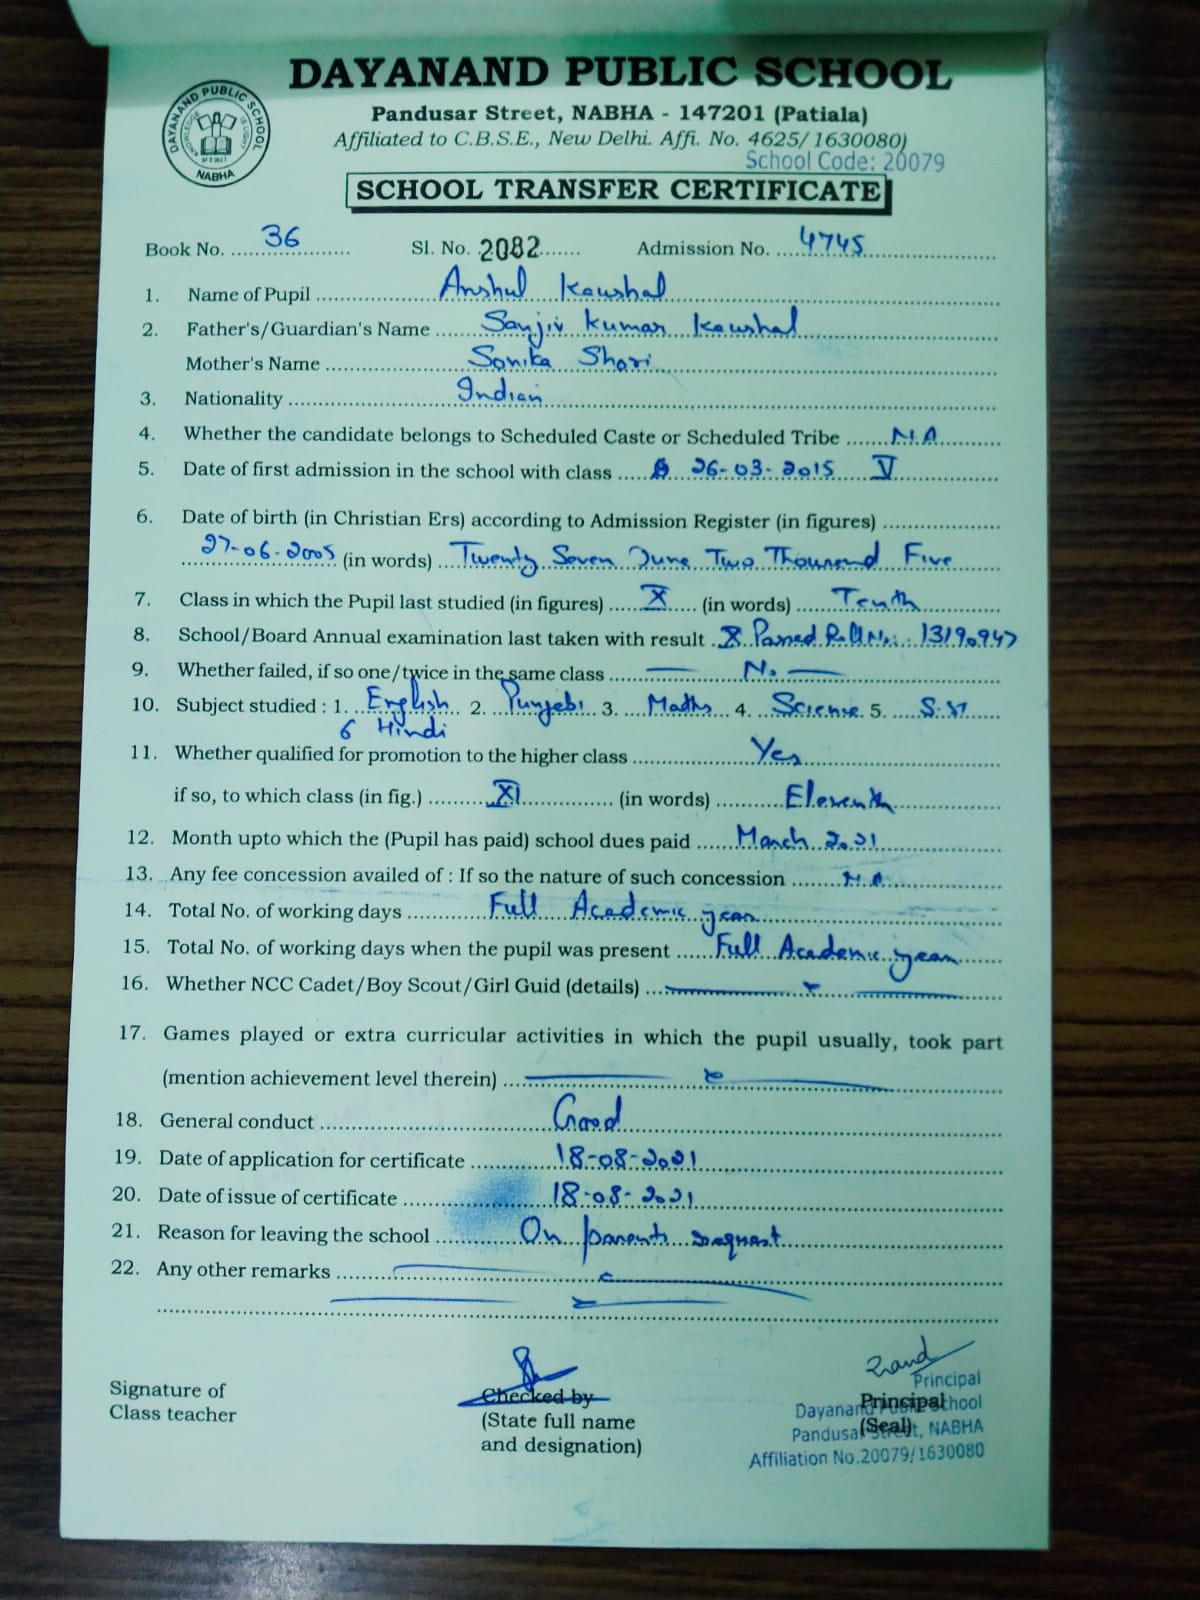 DAYANAND PUBLIC SCHOOL
Pandusar Street, NABHA - 147201 (Patiala)
Affiliated to C.B.S.E., New Delhi. Affi. No. 4625/ 1630080)
School Code: 20079
DAYANAND PUBLIC SCHOOL
KNOWLEDGE IS LIGHT
NABHA
SCHOOL TRANSFER CERTIFICATE
Book No. 36 Sl. No. 2082 Admission No. 4745
1. Name of Pupil Anshul Kaushal
2. Father's/Guardian's Name Sanjiv Kumar Kaushal
Mother's Name Sonika Shori
3. Nationality Indian
4. Whether the candidate belongs to Scheduled Caste or Scheduled Tribe N.A
5. Date of first admission in the school with class 26-03-2015 V
6. Date of birth (in Christian Ers) according to Admission Register (in figures)
27-06-2005 (in words) Twenty Seven June Two Thousand Five
7. Class in which the Pupil last studied (in figures) X (in words) Tenth
8. School/Board Annual examination last taken with result X Passed Roll No. 13190947
9. Whether failed, if so one/twice in the same class No
10. Subject studied : 1. English 2. Punjabi 3. Maths 4. Science 5. S.ST
6 Hindi
11. Whether qualified for promotion to the higher class Yes
if so, to which class (in fig.) XI (in words) Eleventh
12. Month upto which the (Pupil has paid) school dues paid March 2021
13. Any fee concession availed of : If so the nature of such concession N.A
14. Total No. of working days Full Academic year
15. Total No. of working days when the pupil was present Full Academic year
16. Whether NCC Cadet/Boy Scout/Girl Guid (details)
17. Games played or extra curricular activities in which the pupil usually, took part
(mention achievement level therein)
18. General conduct Good
19. Date of application for certificate 18-08-2021
20. Date of issue of certificate 18-08-2021
21. Reason for leaving the school On parents request
22. Any other remarks
Signature of
Class teacher
Checked by
(State full name
and designation)
Principal
(Seal)
Principal
Dayanand Public School
Pandusar Street, NABHA
Affiliation No.20079/1630080